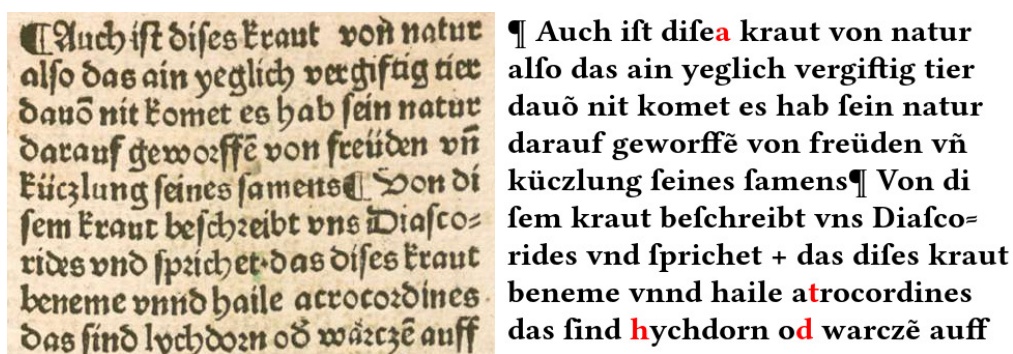 ¶ Auch iſt diſes kraut von natur
alſo das ain yeglich vergiftig tier
dauō nit komet es hab ſein natur
darauf geworffē von freüden vn̄
küczlung ſeines ſamens¶ Von di
ſem kraut beſchreibt vns Diaſco⸗
rides vnd ſprichet·das diſes kraut
beneme vnnd haile acrocordines
das ſind lychdorn od̄ waͤrczē auff
¶ Auch iſt diſea kraut von natur
alſo das ain yeglich vergiftig tier
dauõ nit komet es hab ſein natur
darauf geworffẽ von freüden vñ
küczlung ſeines ſamens¶ Von di
ſem kraut beſchreibt vns Diaſco⸗
rides vnd ſprichet + das diſes kraut
beneme vnnd haile atrocordines
das ſind hychdorn od warczẽ auff